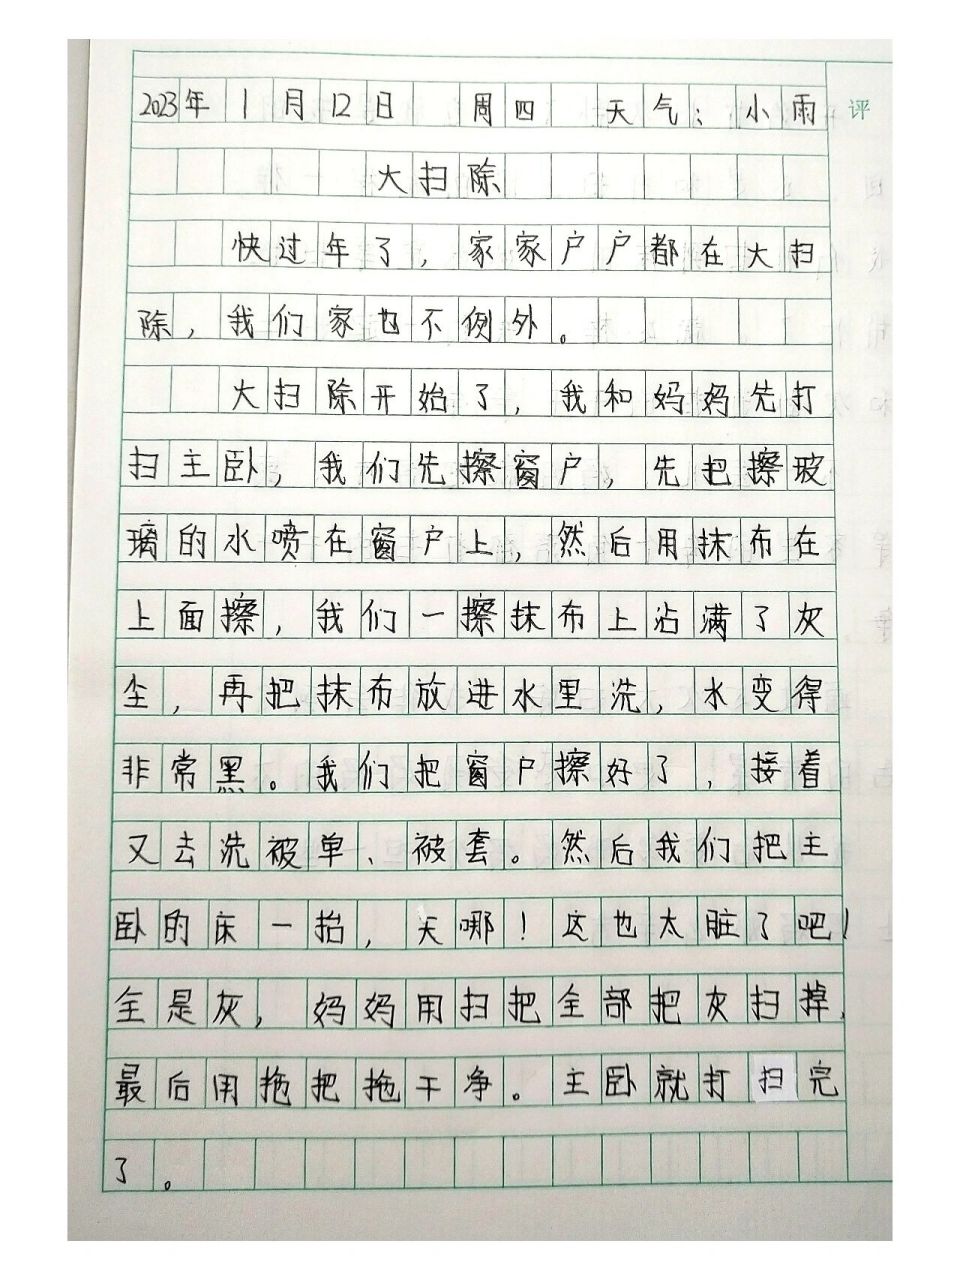 2023年1月12日 周四 天气:小雨
评
大扫除
快过年了,家家户户都在大扫
除,我们家也不例外。
大扫除开始了,我和妈妈先打
扫主卧,我们先擦窗户,先把擦玻
璃的水喷在窗户上,然后用抹布在
上面擦,我们一擦抹布上沾满了灰
尘,再把抹布放进水里洗,水变得
非常黑。我们把窗户擦好了,接着
又去洗被单、被套。然后我们把主
卧的床一抬,天哪!这也太脏了吧!
全是灰,妈妈用扫把全部把灰扫掉,
最后用拖把拖干净。主卧就打扫完
了。